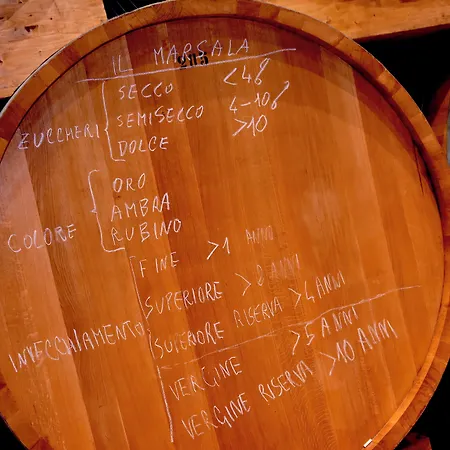 IL MARSALA
ZUCCHERI
SECCO <4%
SEMISECCO 4-10%
DOLCE >10
COLORE
ORO
AMBRA
RUBINO
INVECCHIAMENTO
FINE >1 ANNO
SUPERIORE > 2 ANNI
SUPERIORE RISERVA >4 ANNI
VERGINE >5 ANNI
VERGINE RISERVA >10 ANNI